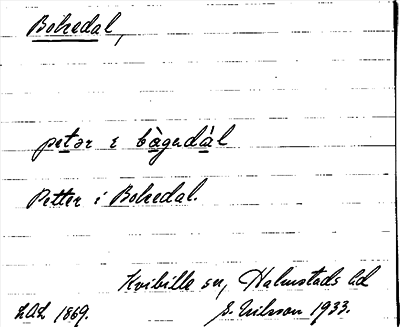 Bokedal,
petər ɪ bàgadàl
Petter i Bokedal.
Kvibille sn, Halmstads hd
LAL 1869. E. Nilsson 1933.